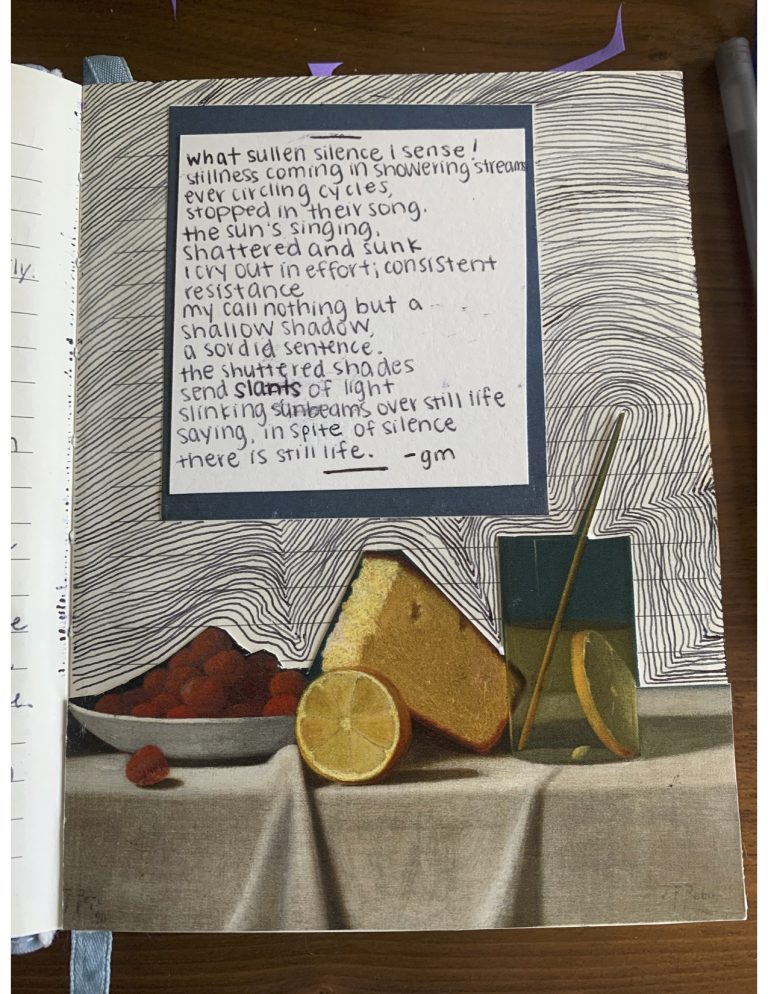 what sullen silence I sense!
stillness coming in showering streams
ever circling cycles,
stopped in their song.
the sun's singing,
shattered and sunk
I cry out in effort; consistent
resistance
my call nothing but a
shallow shadow,
a sordid sentence.
the shuttered shades
send slants of light
slinking sunbeams over still life
saying, in spite of silence
there is still life. -gm
ly.